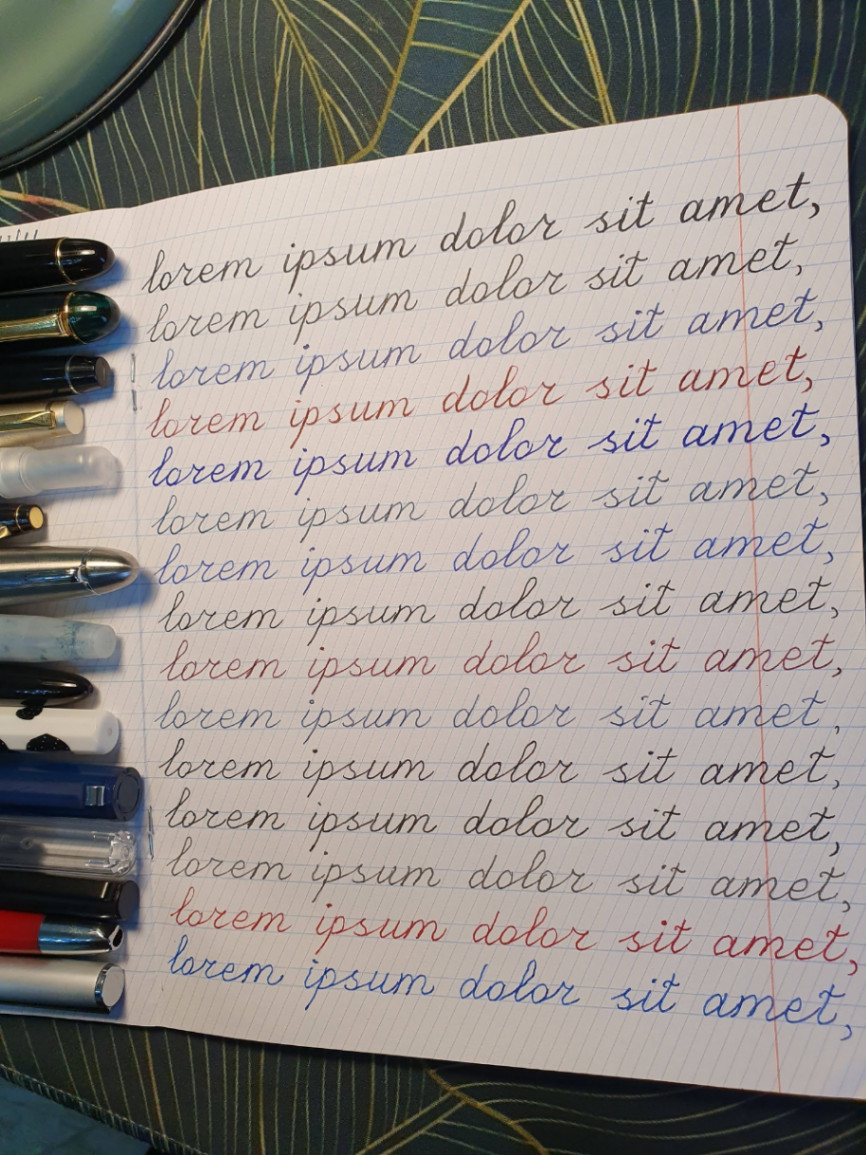 lorem ipsum dolor sit amet,
lorem ipsum dolor sit amet,
lorem ipsum dolor sit amet,
lorem ipsum dolor sit amet,
lorem ipsum dolor sit amet,
lorem ipsum dolor sit amet,
lorem ipsum dolor sit amet,
lorem ipsum dolor sit amet,
lorem ipsum dolor sit amet,
lorem ipsum dolor sit amet,
lorem ipsum dolor sit amet,
lorem ipsum dolor sit amet,
lorem ipsum dolor sit amet,
lorem ipsum dolor sit amet,
lorem ipsum dolor sit amet,